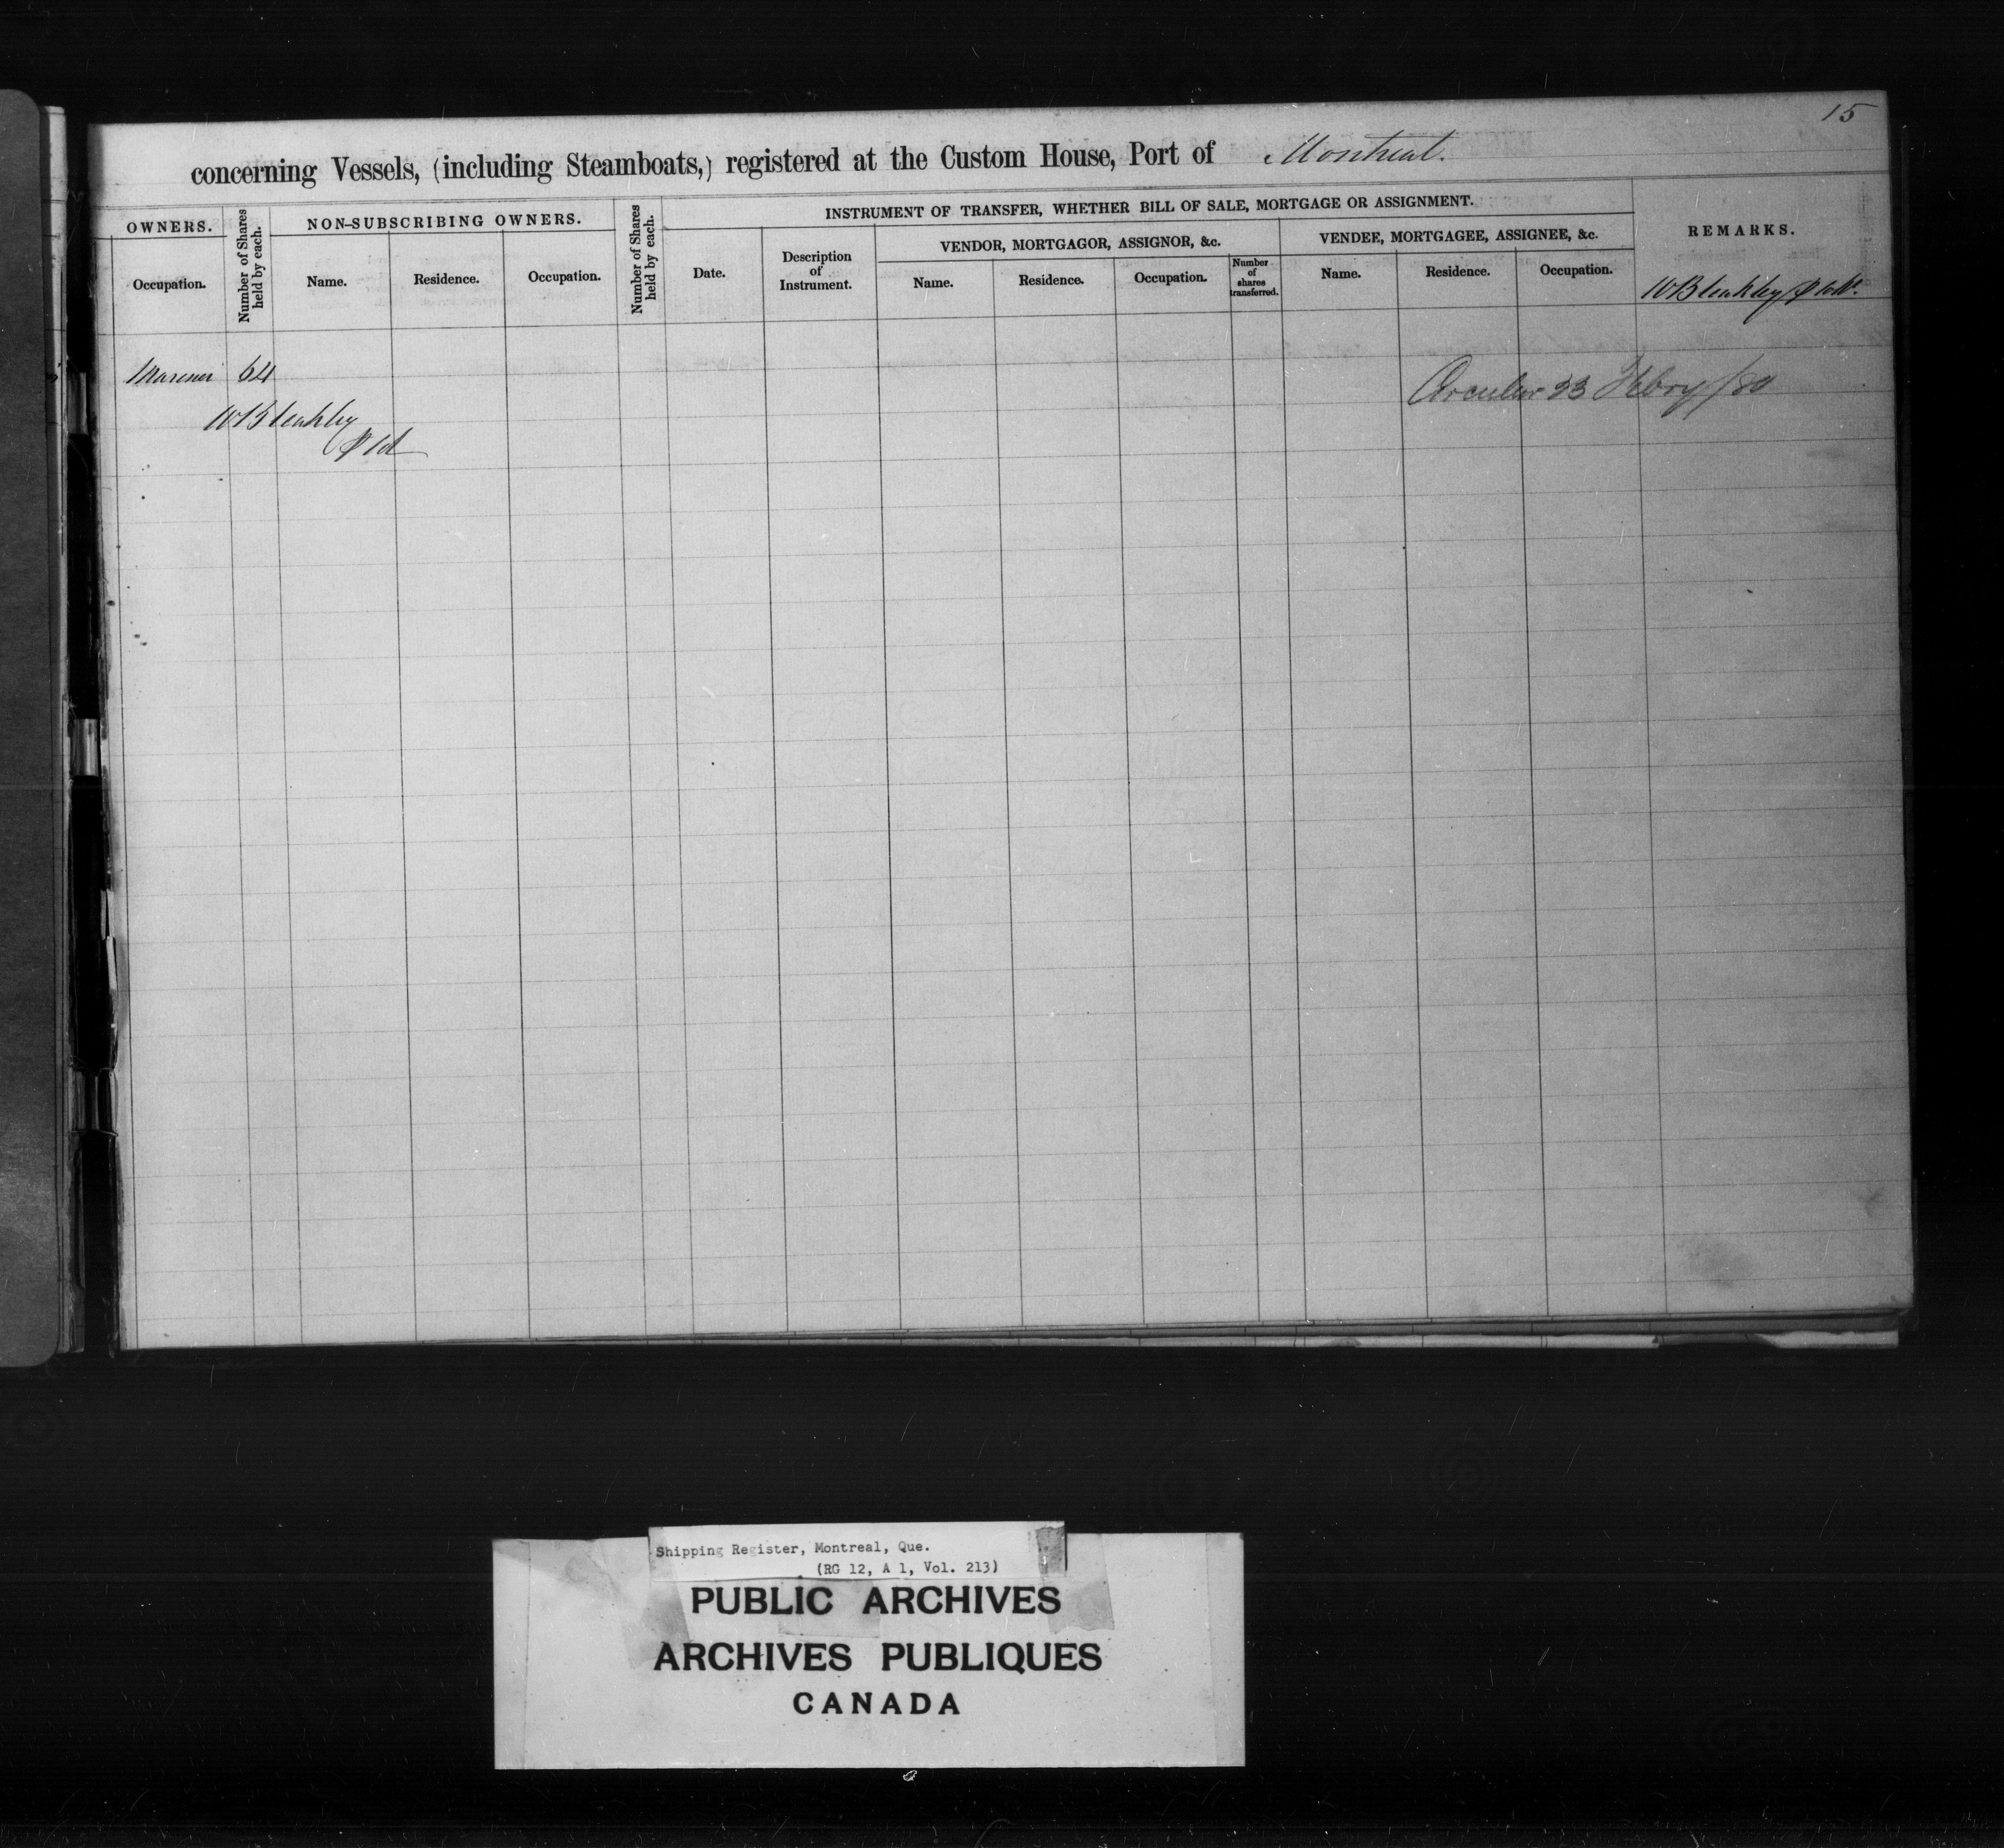 15
concerning Vessels, (including Steamboats,) registered at the Custom House, Port of Montreal.
OWNERS.
Number of Shares held by each.
NON-SUBSCRIBING OWNERS.
Number of Shares held by each.
INSTRUMENT OF TRANSFER, WHETHER BILL OF SALE, MORTGAGE OR ASSIGNMENT.
REMARKS.
VENDOR, MORTGAGOR, ASSIGNOR, &c.
VENDEE, MORTGAGEE, ASSIGNEE, &c.
Occupation.
Name.
Residence.
Occupation.
Date.
Description
of
Instrument.
Name.
Residence.
Occupation.
Number
of
shares
transferred.
Name.
Residence.
Occupation.
W Bleakley
Mariner 64
Circular 23 Febry/80
W Bleakley
Shipping Register, Montreal, Que.
(RG 12, A 1, Vol. 213)
PUBLIC ARCHIVES
ARCHIVES PUBLIQUES
CANADA